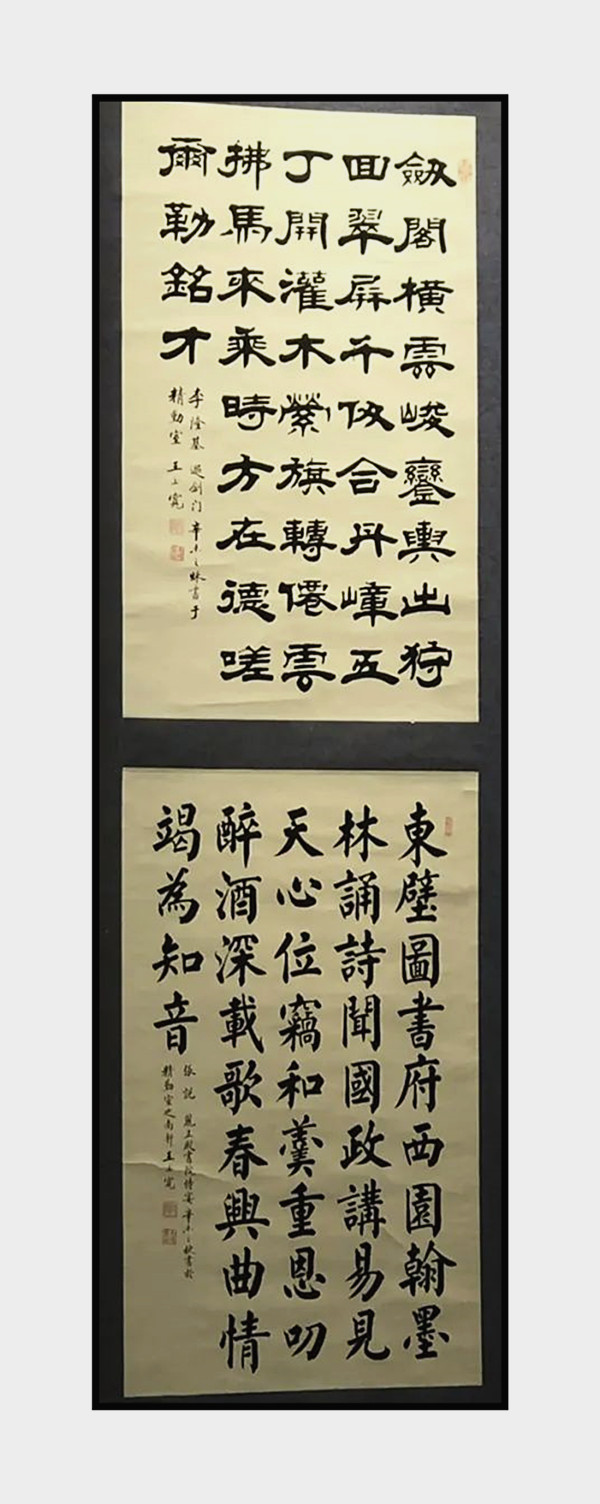 劔閣橫雲峻鑾輿出狩
回翠屏千仞合丹嶂五
丁開灌木縈旗轉僊雲
拂馬來乘時方在德嗟
爾勒銘才
李隆基 過劍门 辛未之秋書于
精勤室 王士寬
東壁圖書府西園翰墨
林誦詩聞國政講易見
天心位竊和羹重恩叨
醉酒深載歌春興曲情
竭為知音
張說 麗正殿書院侍宴 辛未之秋書於
精勤室之南軒 王士寬